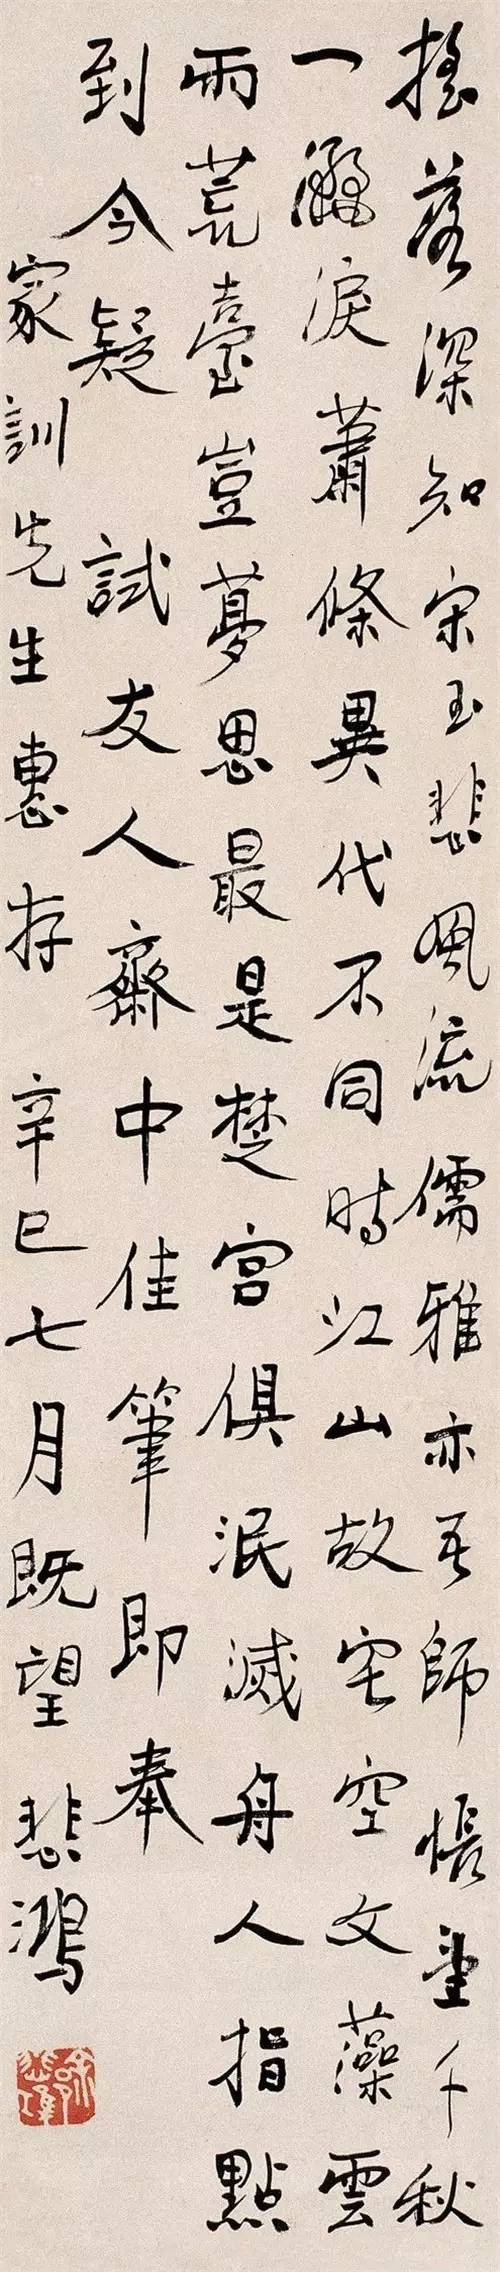 搖落深知宋玉悲風流儒雅亦吾師悵望千秋
一灑淚蕭條異代不同時江山故宅空文藻雲
雨荒臺豈夢思最是楚宮俱泯滅舟人指點
到今疑 試友人齋中佳筆即奉
家訓先生惠存 辛巳七月既望 悲鴻